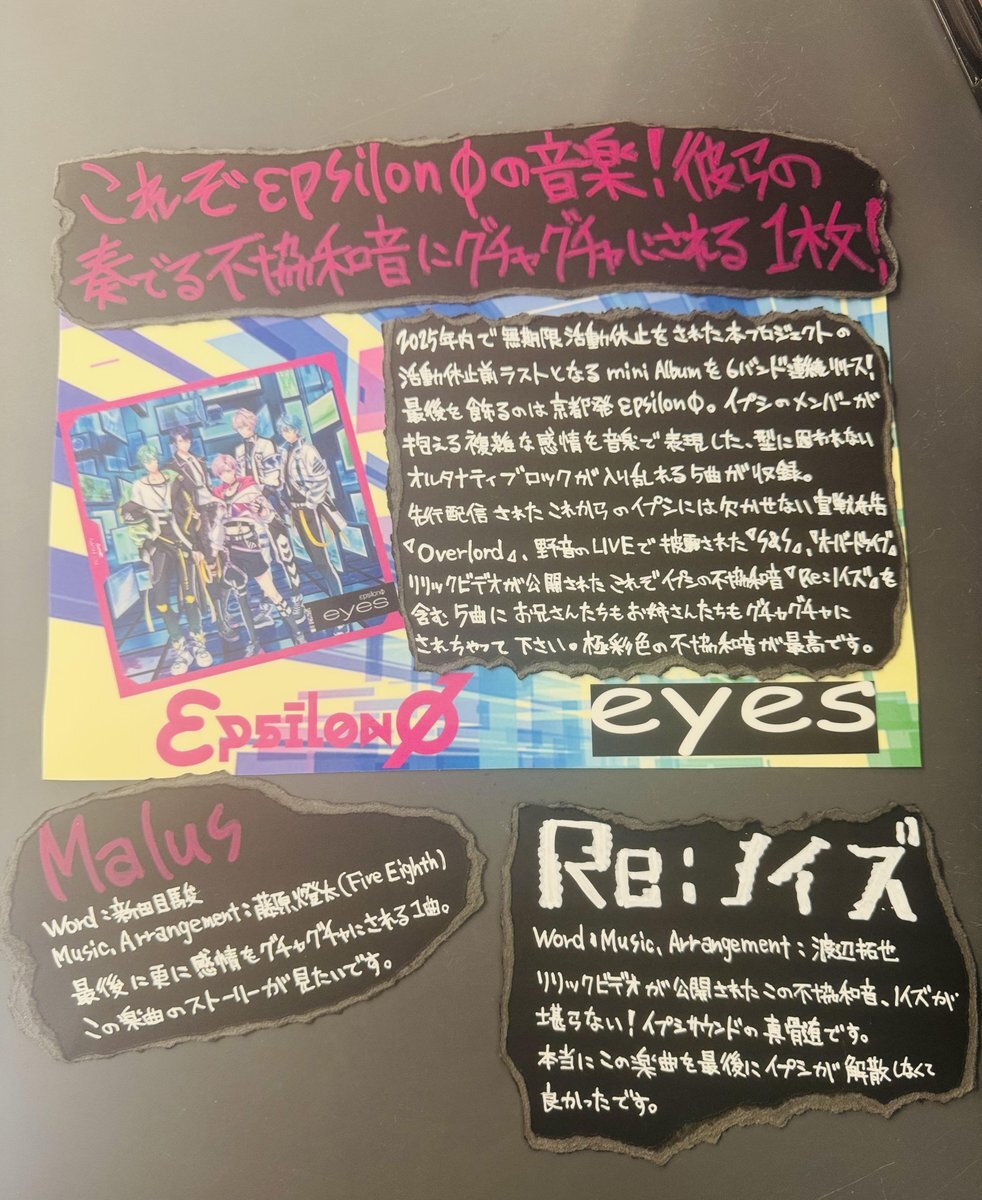 これぞεpsilonΦの音楽!彼らの
奏でる不協和音にグチャグチャにされる1枚!
2025年内で無期限活動休止をされた本プロジェクトの
活動休止前ラストとなるmini Albumを6バンド連続リリース!
最後を飾るのは京都発εpsilonΦ。イプシのメンバーが
抱える複雑な感情を音楽で表現した、型に囚われない
オルタナティブロックが入り乱れる5曲が収録。
先行配信されたこれからのイプシには欠かせない宣戦布告
『Overlord』、野音のLIVEで披露された『S&S』、『オーバードライブ』
リリックビデオが公開されたこれぞイプシの不協和音『Re:ノイズ』を
含む5曲にお兄さんたちもお姉さんたちもグチャグチャに
されちゃって下さい。極彩色の不協和音が最高です。
εpsilonΦ
eyes
εpsilonΦ
eyes
Malus
Word:新田目駿
Music, Arrangement:藤原燈太(Five Eighth)
最後に更に感情をグチャグチャにされる1曲。
この楽曲のストーリーが見たいです。
Re:ノイズ
Word・Music, Arrangement:渡辺拓也
リリックビデオが公開されたこの不協和音、ノイズが
堪らない!イプシサウンドの真骨頂です。
本当にこの楽曲を最後にイプシが解散しなくて
良かったです。